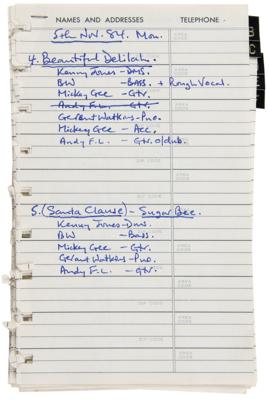 NAMES AND ADDRESSES TELEPHONE
5th Nov. 84. Mon.
4. Beautiful Delilah.
Kenny Jones - Dms.
BW - Bass. + Rough Vocal.
Mickey Gee - Gtr.
Andy F.L. - Gtr.
Geraint Watkins - Pno.
Mickey Gee - Acc.
Andy F.L. - Gtr. o/dub.
5. (Santa Clause) - Sugar Bee.
Kenny Jones - Dms.
BW - Bass.
Mickey Gee - Gtr.
Geraint Watkins - Pno.
Andy F.L. - Gtr.
B
C